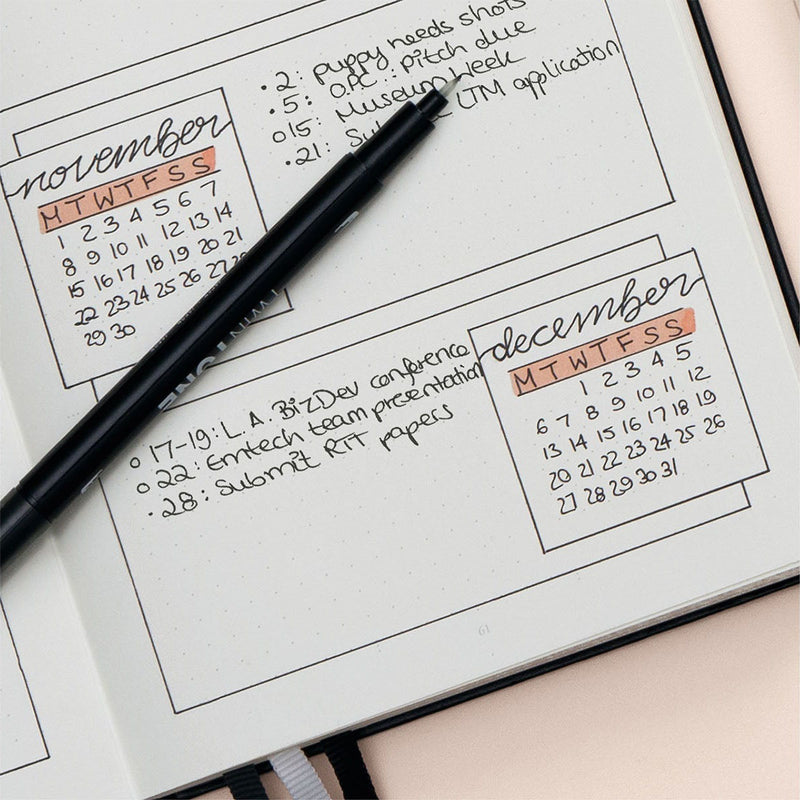 • 2: puppy needs shots
• 5: OPC :: pitch due
○ 15: Museum week
• 21: LTM application
november
M T W T F S S
1 2 3 4 5 6 7
8 9 10 11 12 13 14
15 16 17 18 19 20 21
22 23 24 25 26 27 28
29 30
TWINTONE
december
M T W T F S S
1 2 3 4 5
6 7 8 9 10 11 12
13 14 15 16 17 18 19
20 21 22 23 24 25 26
27 28 29 30 31
○ 17-19: L.A. BizDev conference
○ 22: Emtech team presentation
• 28: Submit RTT papers
61